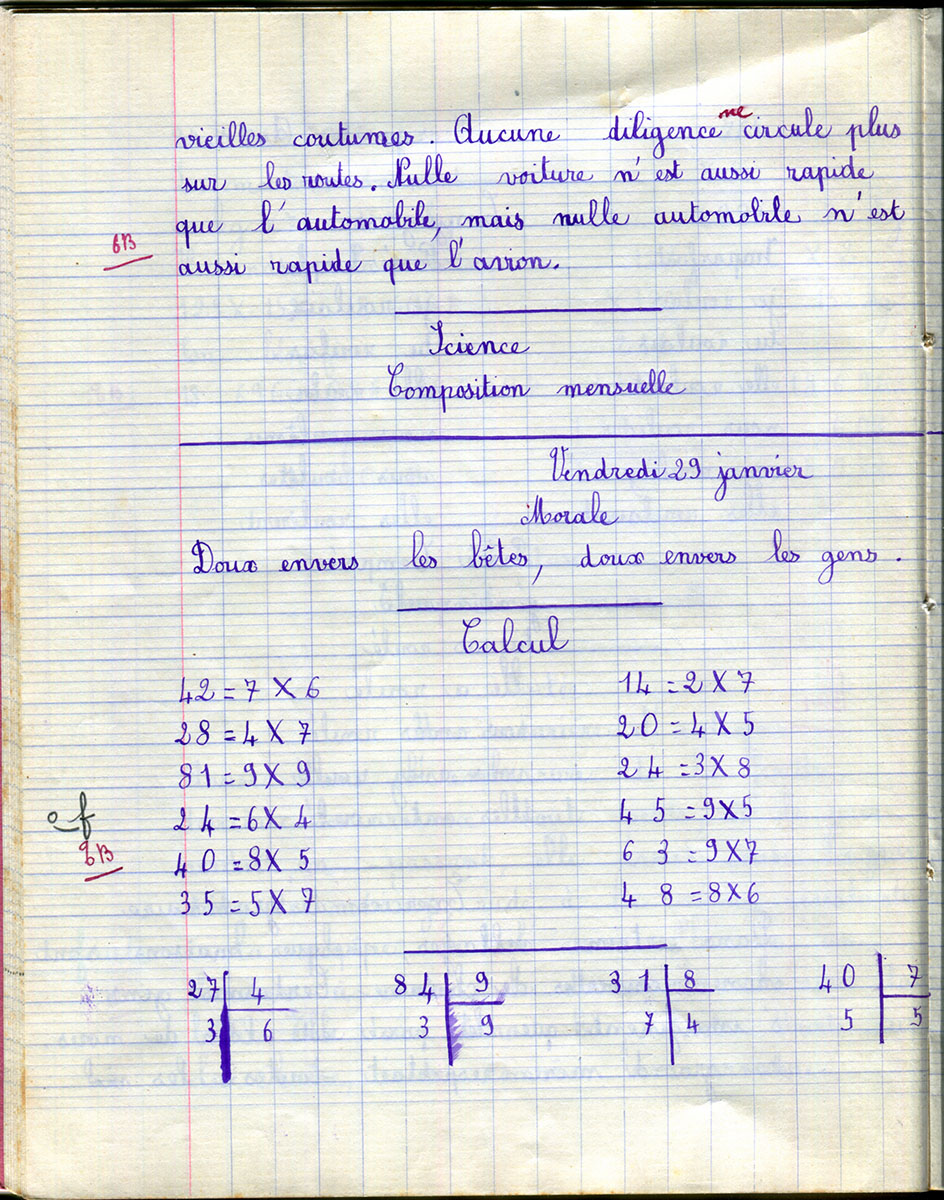 vieilles coutumes. Aucune diligence ne circule plus
sur les routes. Nulle voiture n'est aussi rapide
que l'automobile, mais nulle automobile n'est
aussi rapide que l'avion.
6B
Science
Composition mensuelle
Vendredi 29 janvier
Morale
Doux envers les bêtes, doux envers les gens.
Calcul
42 = 7 X 6 14 = 2 X 7
28 = 4 X 7 20 = 4 X 5
81 = 9 X 9 24 = 3 X 8
of 24 = 6 X 4 45 = 9 X 5
40 = 8 X 5 63 = 9 X 7
35 = 5 X 7 48 = 8 X 6
27 4 84 9 31 8 40 7
3 6 3 9 7 4 5 5